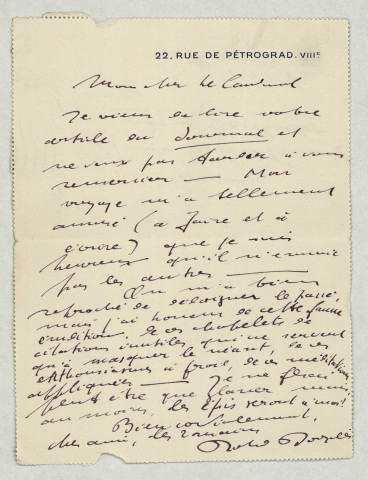 22. RUE DE PÉTROGRAD. VIIIᵉ
Mon cher
Je viens de lire votre
article du Journal et
ne veux pas tarder à vous
remercier — Mon
voyage m'a tellement
amusé (à faire et à
écrire) que je suis
heureux qu'il n'ennuie
pas les autres —
On m'a bien
reproché de dédaigner le passé,
mais j'ai horreur de cette fausse
érudition de ces chapelets de
citations inutiles qui ne servent
qu'à masquer le néant, de ces
enthousiasmes à froid, de ces méditations
appliquées — Je ne ferai
peut être que glaner mais,
au moins, les épis seront à moi!
Bien cordialement,
cher ami,